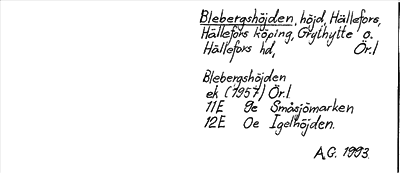 Blebergshöjden, höjd, Hällefors,
Hällefors köping, Grythytte o.
Hällefors hd, Ör.l
Blebergshöjden
ek (1957) Ör.l
11E 9e Småsjömarken
12E 0e Igelhöjden.
A.G. 1993.